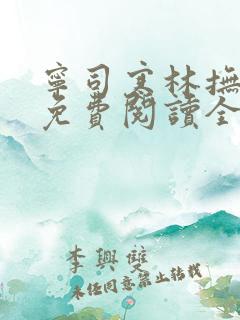 寧司寒林撫
免費閱讀全
李興雙
未經同意禁止轉載